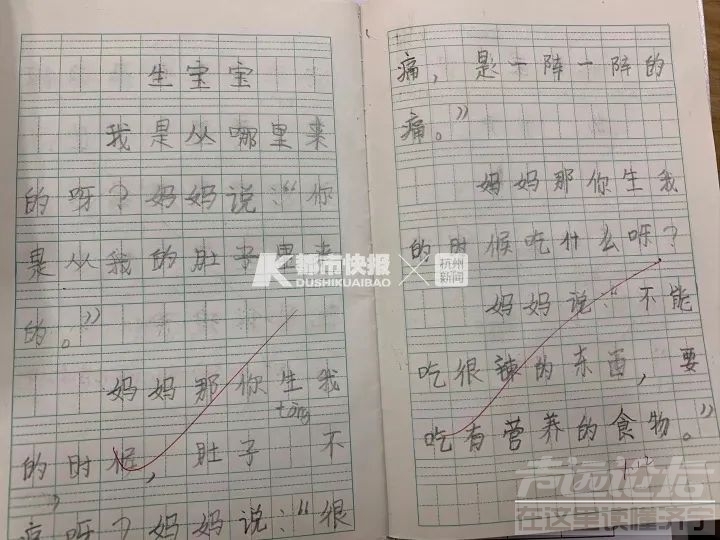 生宝宝
我是从哪里来
的呀？妈妈说：“你
是从我的肚子里来
的。”
妈妈那你生我
tòng
的时候，肚子 不
痛呀？妈妈说：“很
痛，是一阵一阵的
痛。”
妈妈那你生我
的时候吃什么呀？
妈妈说：“不能
吃很辣的东西，要
吃有营养的食物。”
都市快报
DUSHIKUAIBAO
×
杭州
新闻
在这里读懂济宁